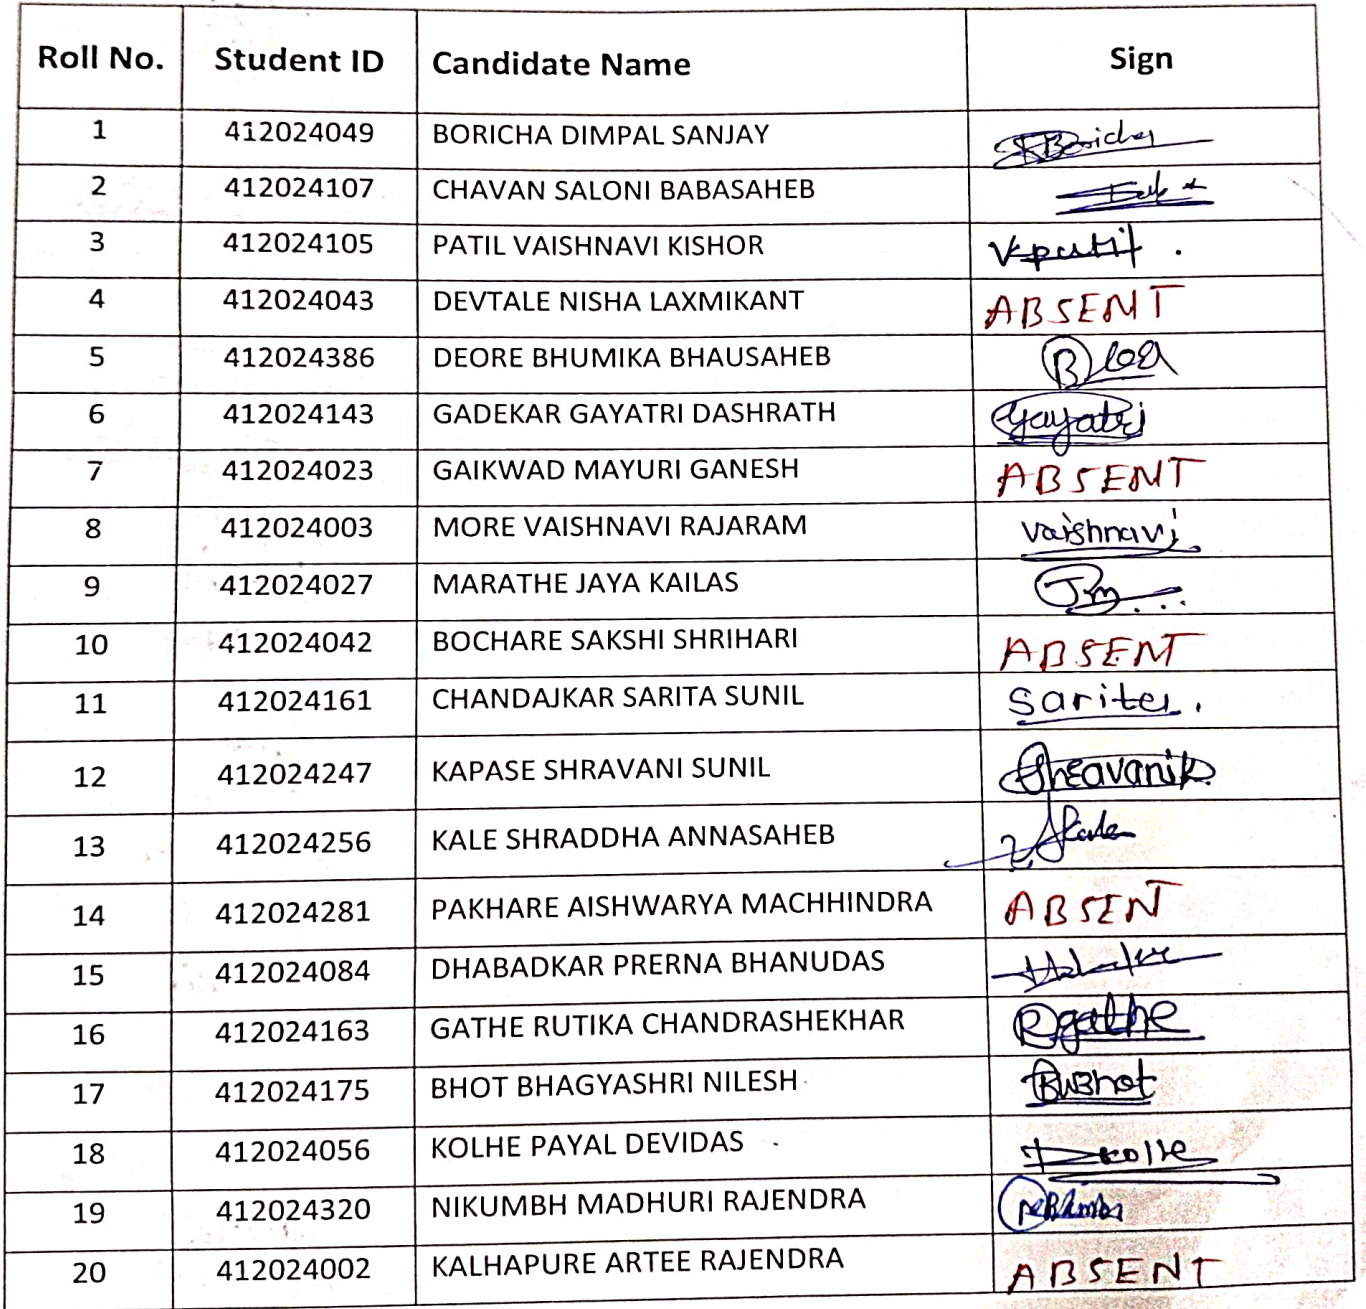 Roll No. Student ID Candidate Name Sign
1 412024049 BORICHA DIMPAL SANJAY
2 412024107 CHAVAN SALONI BABASAHEB
3 412024105 PATIL VAISHNAVI KISHOR V.patil.
4 412024043 DEVTALE NISHA LAXMIKANT ABSENT
5 412024386 DEORE BHUMIKA BHAUSAHEB
6 412024143 GADEKAR GAYATRI DASHRATH Gayatri
7 412024023 GAIKWAD MAYURI GANESH ABSENT
8 412024003 MORE VAISHNAVI RAJARAM vaishnavi
9 412024027 MARATHE JAYA KAILAS
10 412024042 BOCHARE SAKSHI SHRIHARI ABSENT
11 412024161 CHANDAJKAR SARITA SUNIL Sarita.
12 412024247 KAPASE SHRAVANI SUNIL ShravaniK
13 412024256 KALE SHRADDHA ANNASAHEB
14 412024281 PAKHARE AISHWARYA MACHHINDRA ABSENT
15 412024084 DHABADKAR PRERNA BHANUDAS
16 412024163 GATHE RUTIKA CHANDRASHEKHAR Rgathe
17 412024175 BHOT BHAGYASHRI NILESH
18 412024056 KOLHE PAYAL DEVIDAS
19 412024320 NIKUMBH MADHURI RAJENDRA
20 412024002 KALHAPURE ARTEE RAJENDRA ABSENT